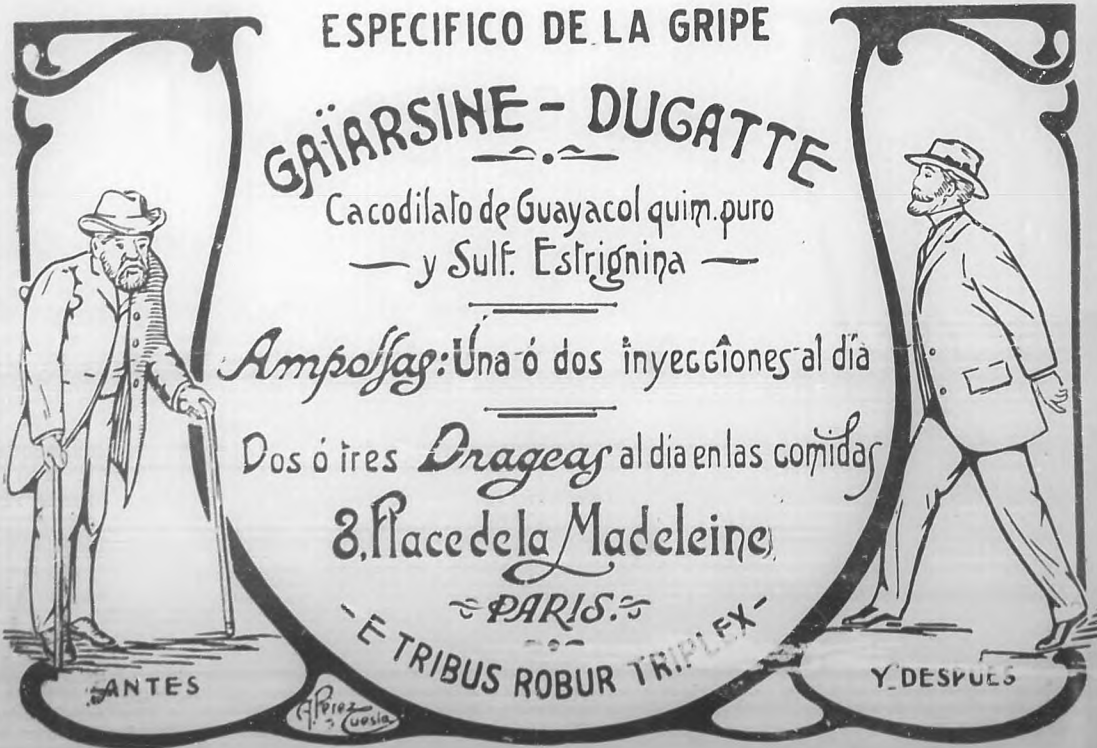 ESPECIFICO DE LA GRIPE
GAÏARSINE - DUGATTE
Cacodilato de Guayacol quim. puro
— y Sulf. Estrignina —
Ampollas: Una ó dos inyecciones al día
Dos ó tres Drageas al dia en las comidas
8, Place de la Madeleine,
PARIS.
- E TRIBUS ROBUR TRIPLEX -
ANTES
Y DESPUES
A. Pérez
y Cuesta